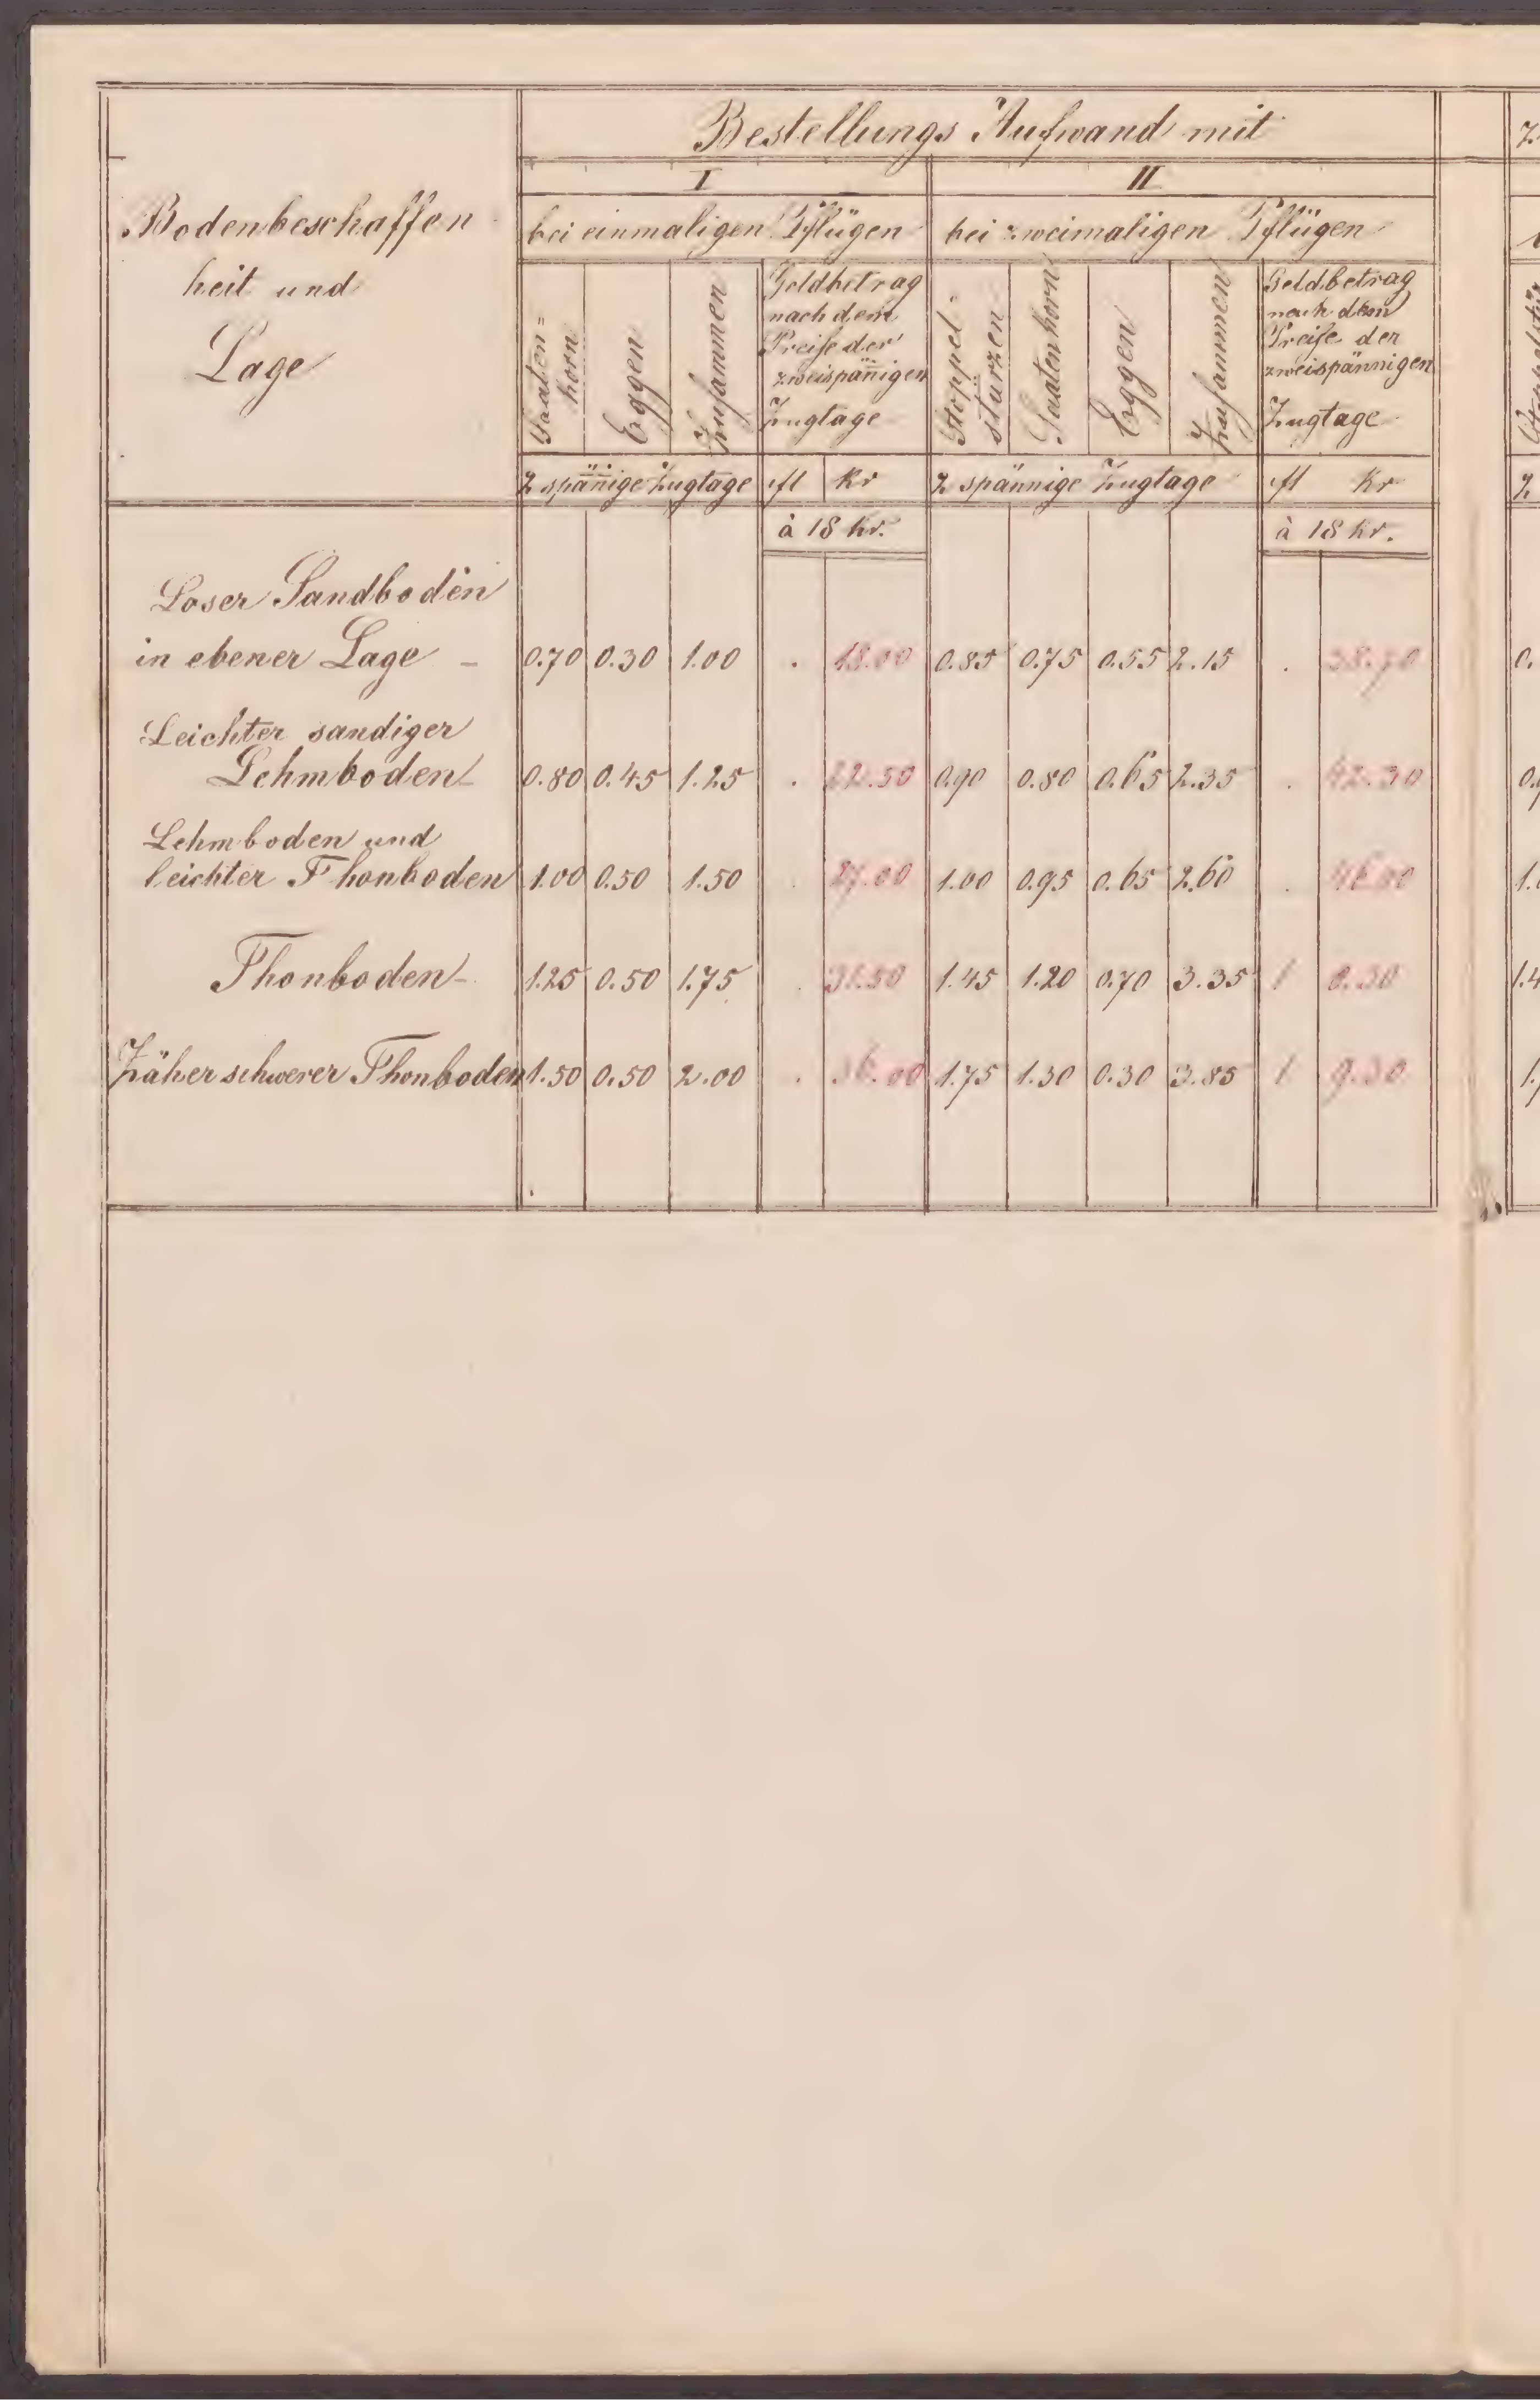 Bestellungs Aufwand mit
Bodenbeschaffen
heit und
Lage
I
II
bei einmaligen Pflügen
bei zweimaligen Pflügen
Saaten=
horn
Eggen
Zusammen
Geldbetrag
nach dem
Preise der
zweispänigen
Zugtage
Stoppel
stürzen
Saatenhorn
Eggen
Zusammen
Geldbetrag
nach dem
Preise der
zweispännigen
Zugtage
2 spänige Zugtage fl kr 2 spännige Zugtage fl Kr
à 18 kr. à 18 kr.
Loser Sandboden
in ebener Lage - 0.70 0.30 1.00 . 18.00 0.85 0.75 0.55 2.15 . 38.70
Leichter sandiger
Lehmboden 0.80 0.45 1.25 . 22.50 0.90 0.80 0.65 2.35 . 42.30
Lehmboden und
leichter Thonboden 1.00 0.50 1.50 . 27.00 1.00 0.95 0.65 2.60 .
Thonboden- 1.25 0.50 1.75 . 31.50 1.45 1.20 0.70 3.35 1 0.30
Zäher schwerer Thonboden 1.50 0.50 2.00 . 36.00 1.75 1.30 0.30 3.85 1 9.30